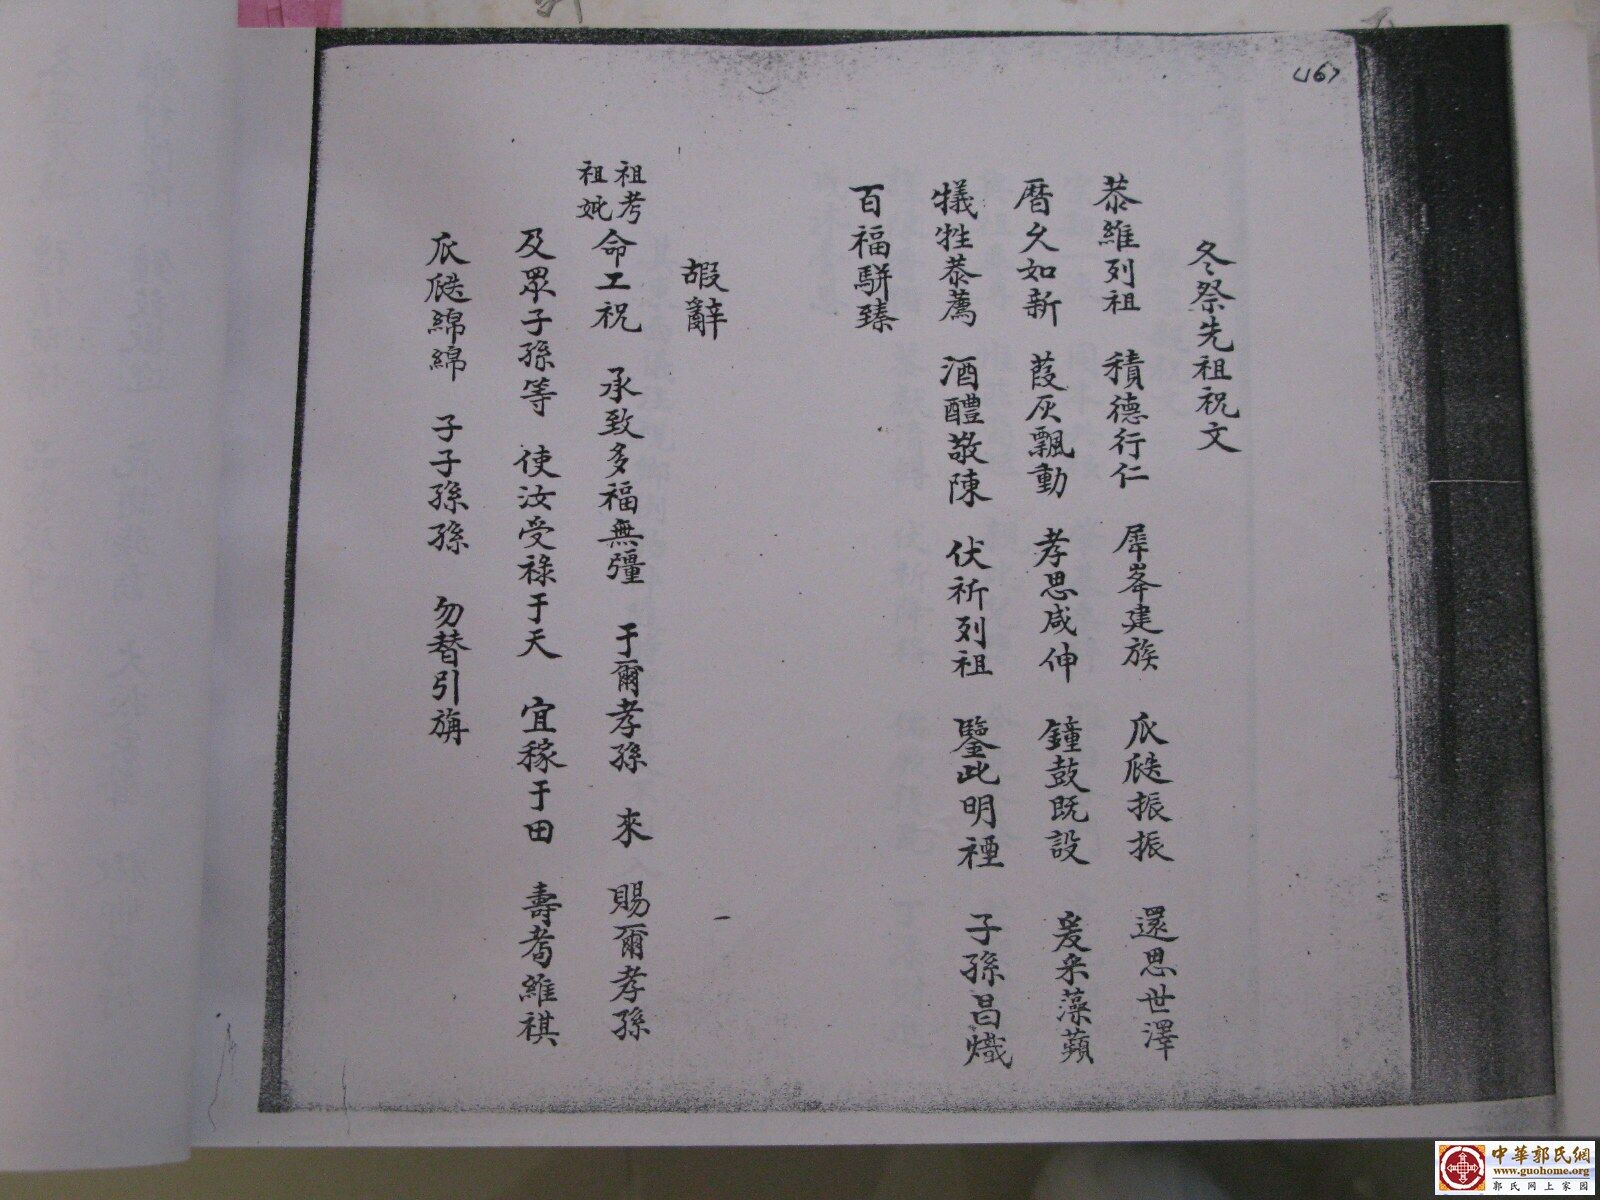 <167
冬祭先祖祝文
恭維列祖 積德行仁 犀峯建族 瓜瓞振振 還思世澤
曆久如新 葭灰飄動 孝思咸伸 鐘鼓既設 爰采藻蘋
犧牲恭薦 酒醴敬陳 伏祈列祖 鑒此明禋 子孫昌熾
百福駢臻
嘏辭
祖考
祖妣
命工祝 承致多福無彊 于爾孝孫 來 賜爾孝孫
及眾子孫等 使汝受祿于天 宜稼于田 壽耇維祺
瓜瓞綿綿 子子孫孫 勿替引旃
中華郭氏網
www.guohome.org
郭氏网上家园